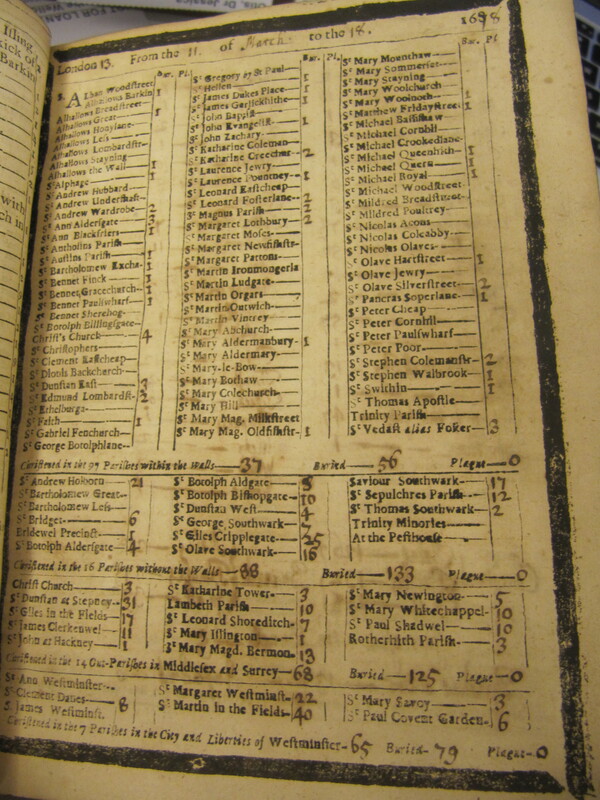 London 13. From the 11. of March to the 18. 1678
Bur. Pl.
St Alban Woodstreet
Alhallows Barkin 1
Alhallows Breadstreet
Alhallows Great 1
Alhallows Honylane
Alhallows Less
Alhallows Lombardstr
Alhallows Stayning
Alhallows the Wall 1
St Alphage 1
St Andrew Hubbard
St Andrew Undershaft
St Andrew Wardrobe 2
St Ann Aldersgate
St Ann Blackfriers
St Antholins Parish
St Austins Parish 1
St Bartholomew Excha. 1
St Bennet Finck 1
St Bennet Gracechurch 1
St Bennet Paulswharf 1
St Bennet Sherehog
St Botolph Billingsgate
Christ's Church 4
St Christophers
St Clement Eastcheap
St Dionis Backchurch
St Dunstan East 3
St Edmund Lombardst. 2
St Ethelburga
St Faith 1
St Gabriel Fenchurch
St George Botolphlane
Bur. Pl.
St Gregory by St Paul
St Hellen 1
St James Dukes Place 1
St James Garlickhithe 1
St John Baptist
St John Evangelist 1
St John Zachary
St Katharine Coleman
St Katharine Creechur. 2
St Laurence Jewry
St Laurence Pountney 1
St Leonard Eastcheap
St Leonard Fosterlane 2
St Magnus Parish 2
St Margaret Lothbury 2
St Margaret Moses
St Margaret Newfishstr
St Margaret Pattons
St Martin Ironmongerla
St Martin Ludgate
St Martin Orgars
St Martin Outwich
St Martin Vintrey
St Mary Abchurch
St Mary Aldermanbury 1
St Mary Aldermary
St Mary-le-Bow
St Mary Bothaw
St Mary Colechurch
St Mary Hill
St Mary Mag. Milkstreet
St Mary Mag. Oldfishstr 1
Bur. Pl.
St Mary Mounthaw
St Mary Sommerset
St Mary Stayning
St Mary Woolchurch
St Mary Woolnoth 1
St Matthew Fridaystreet 1
St Michael Bassishaw
St Michael Cornhil
St Michael Crookedlane
St Michael Queenhith 1
St Michael Quern 1
St Michael Royal 1
St Michael Woodstreet
St Mildred Breadstreet
St Mildred Poultrey
St Nicolas Acons
St Nicolas Coleabby
St Nicolas Olaves
St Olave Hartstreet 1
St Olave Jewry
St Olave Silverstreet 2
St Pancras Soperlane 1
St Peter Cheap
St Peter Cornhil
St Peter Paulswharf
St Peter Poor
St Stephen Colemanstr 2
St Stephen Walbrook 1
St Swithin 1
St Thomas Apostle
Trinity Parish
St Vedast alias Foster 3
Christened in the 97 Parishes within the Walls 37 Buried 56 Plague 0
St Andrew Holborn 21
St Bartholomew Great
St Bartholomew Less
St Bridget 6
Bridewel Precinct 1
St Botolph Aldersgate 4
St Botolph Aldgate 8
St Botolph Bishopsgate 10
St Dunstan West 4
St George Southwark 7
St Giles Cripplegate 25
St Olave Southwark 16
Saviour Southwark 17
St Sepulchres Parish 12
St Thomas Southwark 2
Trinity Minories
At the Pesthouse
Christened in the 16 Parishes without the Walls 88 Buried 133 Plague 0
Christ Church 3
St Dunstan at Stepney 31
St Giles in the Fields 17
St James Clerkenwel 11
St John at Hackney 1
St Katharine Tower 3
Lambeth Parish 10
St Leonard Shoreditch 7
St Mary Islington 1
St Mary Magd. Bermon. 13
St Mary Newington 5
St Mary Whitechappel 10
St Paul Shadwel 10
Rotherhith Parish 3
Christened in the 14 Out-Parishes in Middlesex and Surrey 68 Buried 125 Plague 0
St Ann Westminster
St Clement Danes 8
St James Westminst.
St Margaret Westminst. 22
St Martin in the Fields 40
St Mary Savoy 3
St Paul Covent Garden 6
Christened in the 7 Parishes in the City and Liberties of Westminster 65 Buried 79 Plague 0